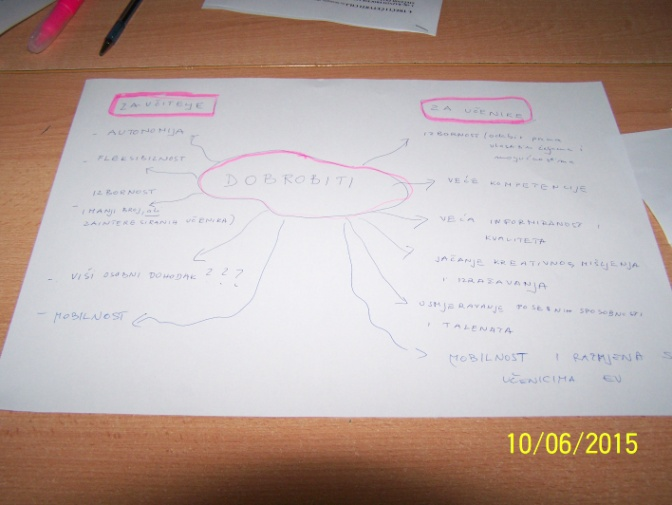 ZA UČITELJE
- AUTONOMIJA
- FLEKSIBILNOST
IZBORNOST
- (MANJI BROJ, ALI
ZAINTERESIRANIH UČENIKA)
- VIŠI OSOBNI DOHODAK ???
- MOBILNOST
DOBROBITI
ZA UČENIKE
IZBORNOST (odabir prema
vlastitim željama i
mogućnostima
VEĆE KOMPETENCIJE
VEĆA INFORMIRANOST I
KVALITETA
JAČANJE KREATIVNOG MIŠLJENJA
I IZRAŽAVANJA
USMJERAVANJE POSEBNIH SPOSOBNOSTI
I TALENATA
MOBILNOST I RAZMJENA S
UČENICIMA EU
10/06/2015